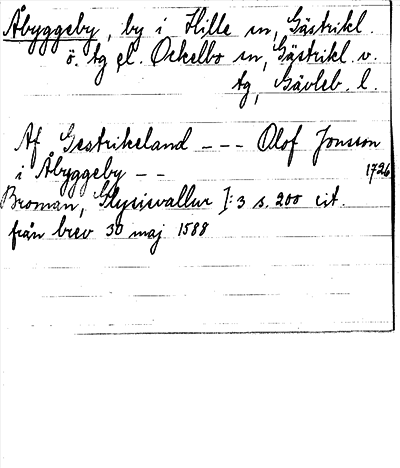 Åbyggeby, by i Hille sn, Gästrikl.
ö. tg el. Ockelbo sn, Gästrikl. v.
tg, Gävleb. l.
Af Gestrikeland --- Olof Jonsson
i Åbyggeby -- 1726
Broman, Glysisvallur I:3 s. 200 cit.
från brev 30 maj 1588